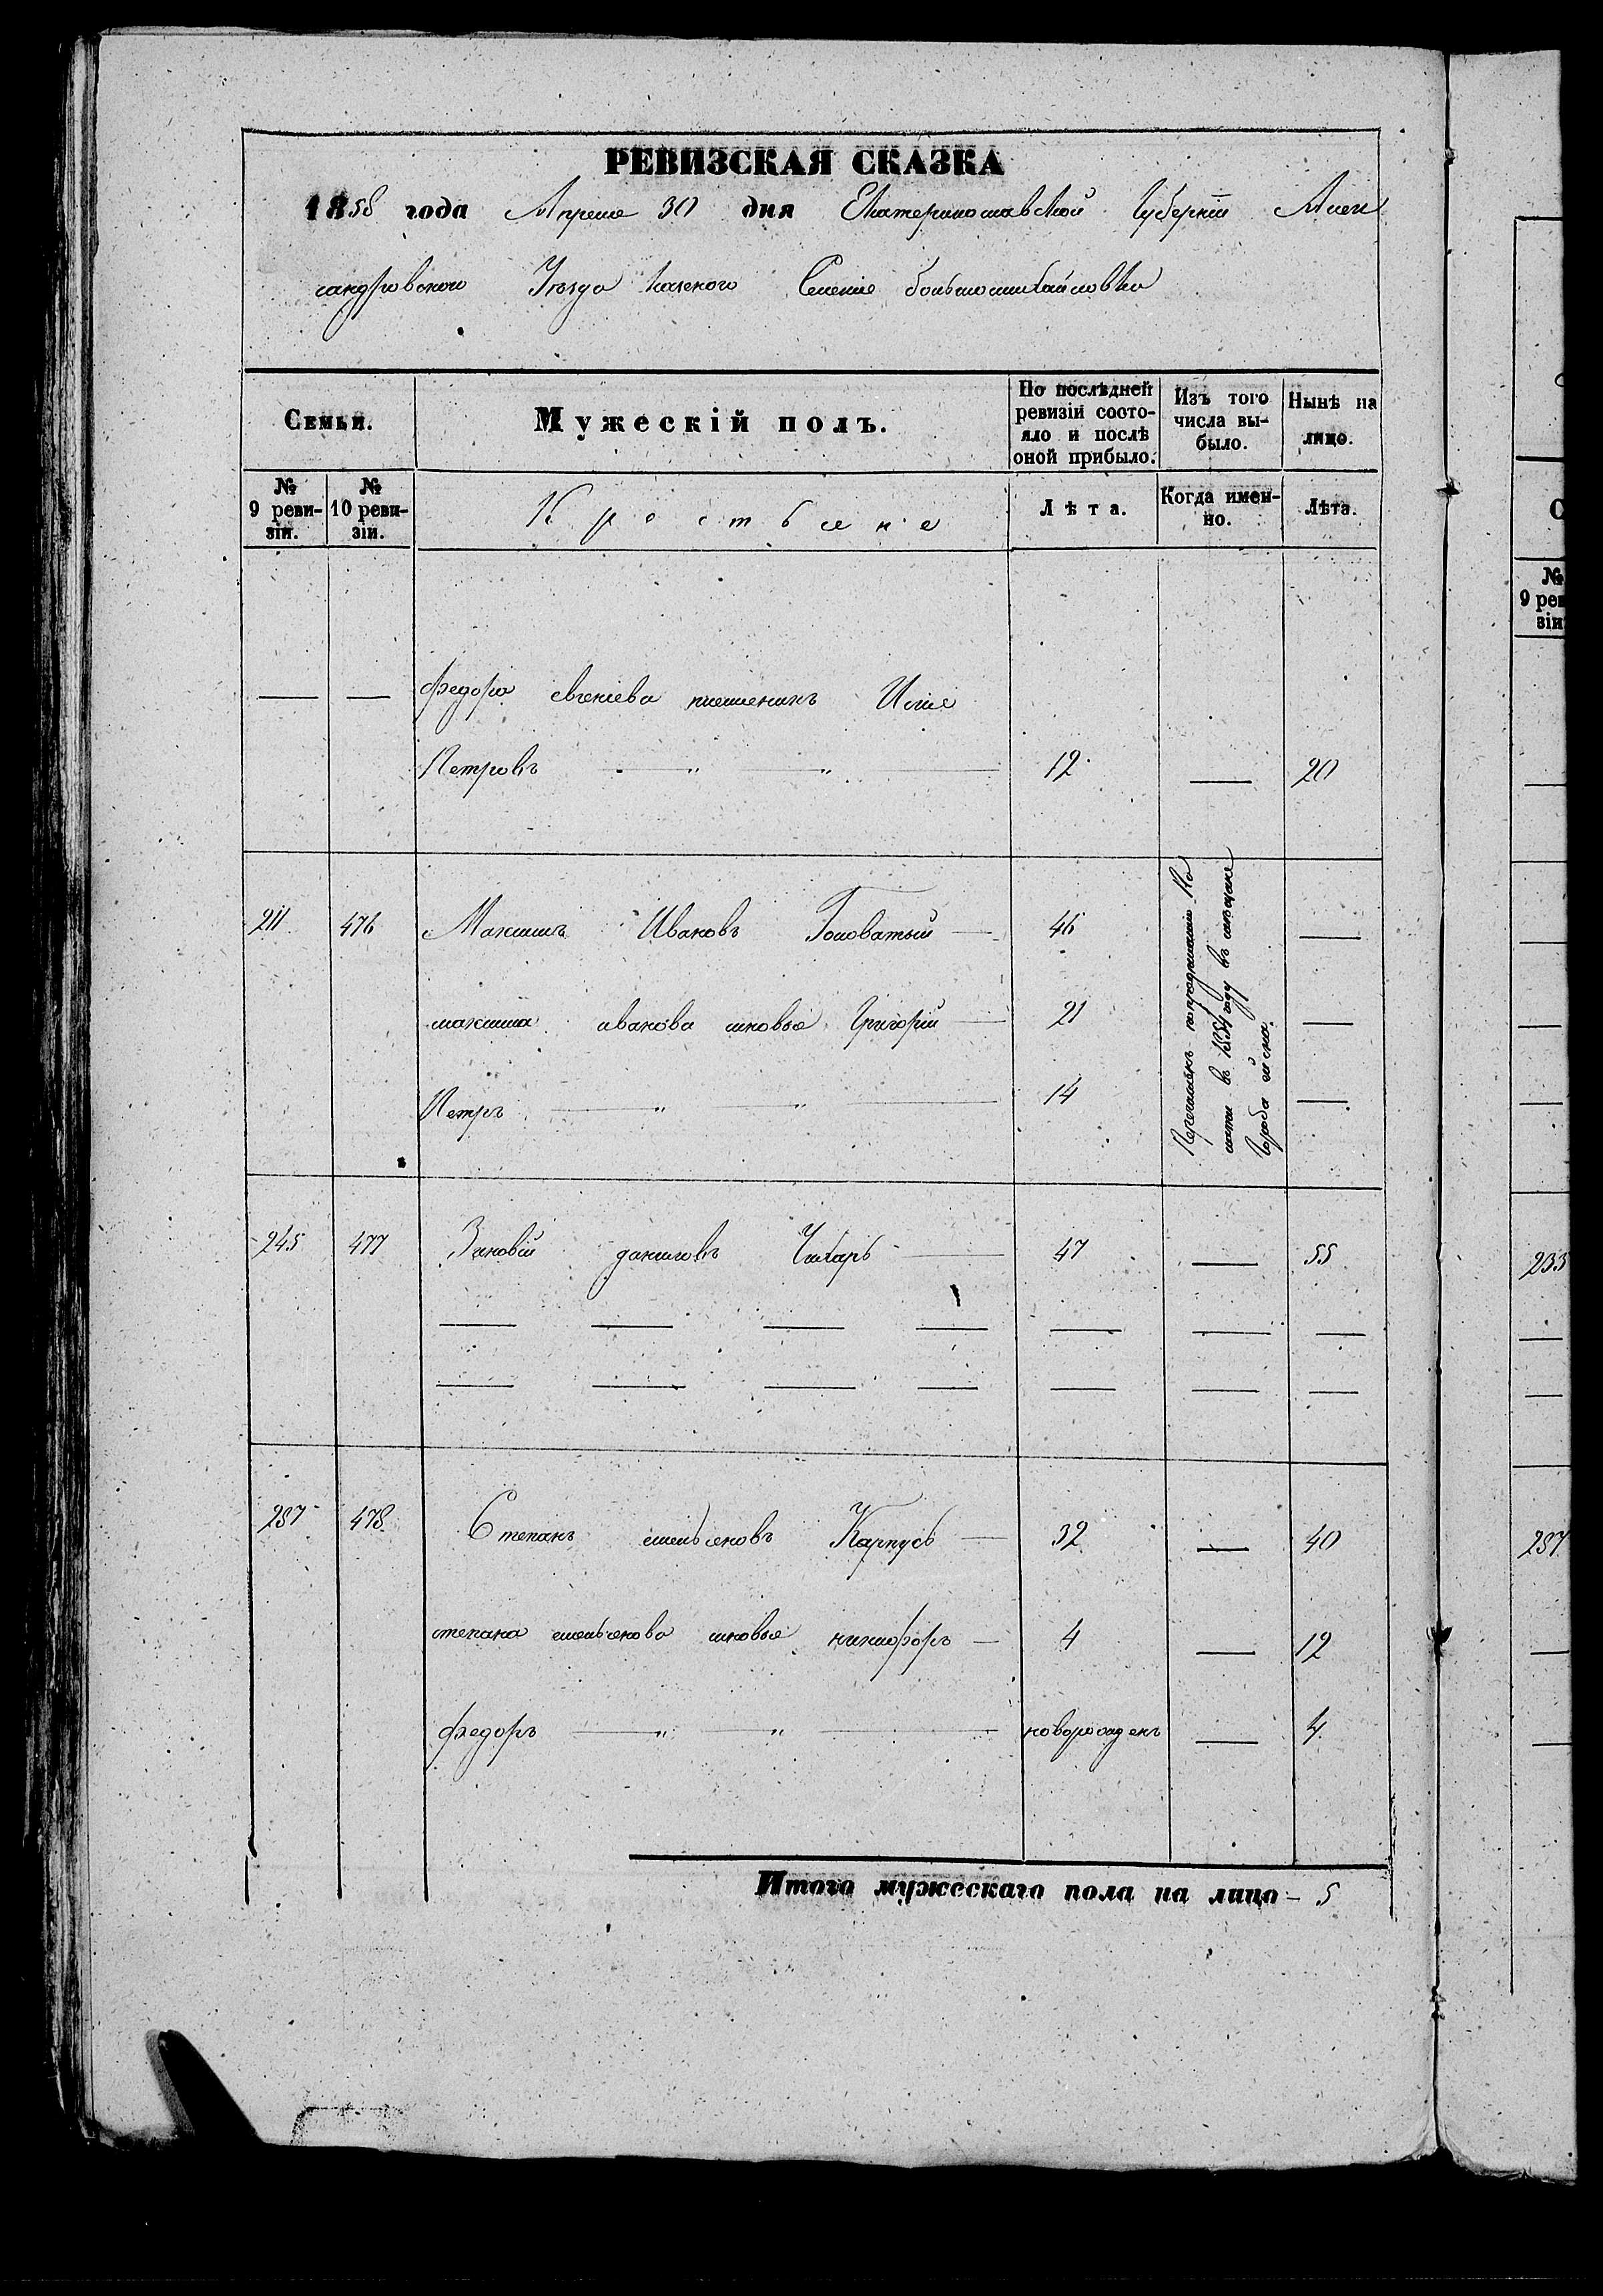 РЕВИЗСКАЯ СКАЗКА
1858 года Апреля 30 дня Екатеринославской Губерніи Алек
сандровскаго Уѣзда казеннаго Селенія большомихайловки
Семьи.
Мужескій полъ.
По послѣдней ревизіи состо-
яло и послѣ оной прибыло.
Изъ того числа вы-
было.
Нынѣ на лицо.
№ 9 реви-
зіи.
№ 10 реви-
зіи.
Крестьяне
Лѣта.
Когда имен-
но.
Лѣта.
— — Федора евгеніева племеникъ Илія
Петровъ — „ — „ — 12 — 20
211 476 Максимъ Ивановъ Головатый — 46 —
максима иванова сыновья Григорій — 21 —
Петръ — „ — „ — 14 —
Перечисленъ
въ 1854 году въ мещане
Города
245 477 Зиновій даниловъ Чихарь — 47 — 55
— — — — — — —
— — — — — — —
287 478 Степанъ емельяновъ Карпусь — 32 — 40
степана емельянова сыновья никифоръ — 4 — 12
федоръ — „ — „ — новорожденъ — 4
Итого мужескаго пола на лицо — 5
С
№
9 рев
зіи
233
287